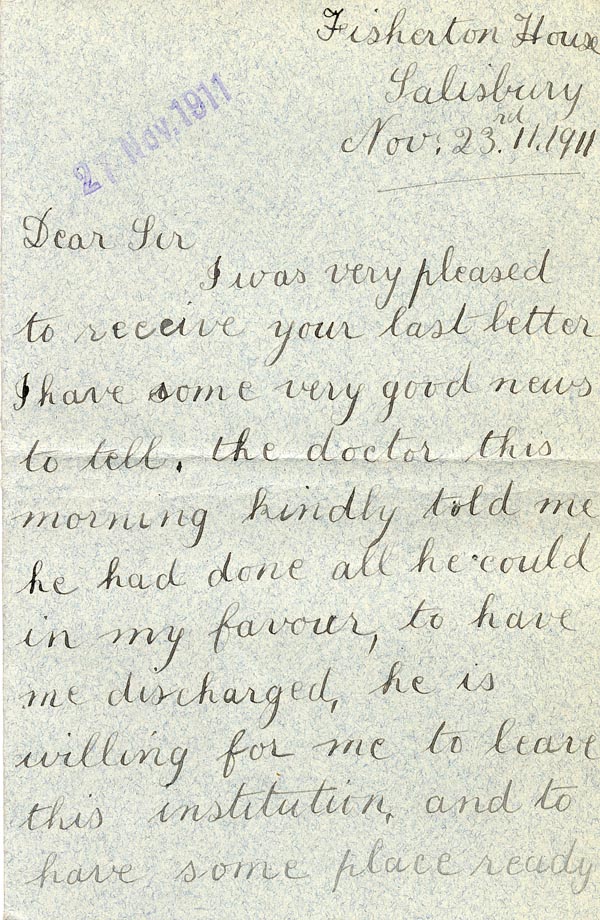 Fisherton House
Salisbury
Nov. 23rd. 11. 1911
27 Nov. 1911
Dear Sir
I was very pleased
to receive your last letter
I have some very good news
to tell. the doctor this
morning kindly told me
he had done all he could
in my favour, to have
me discharged, he is
willing for me to leave
this institution, and to
have some place ready